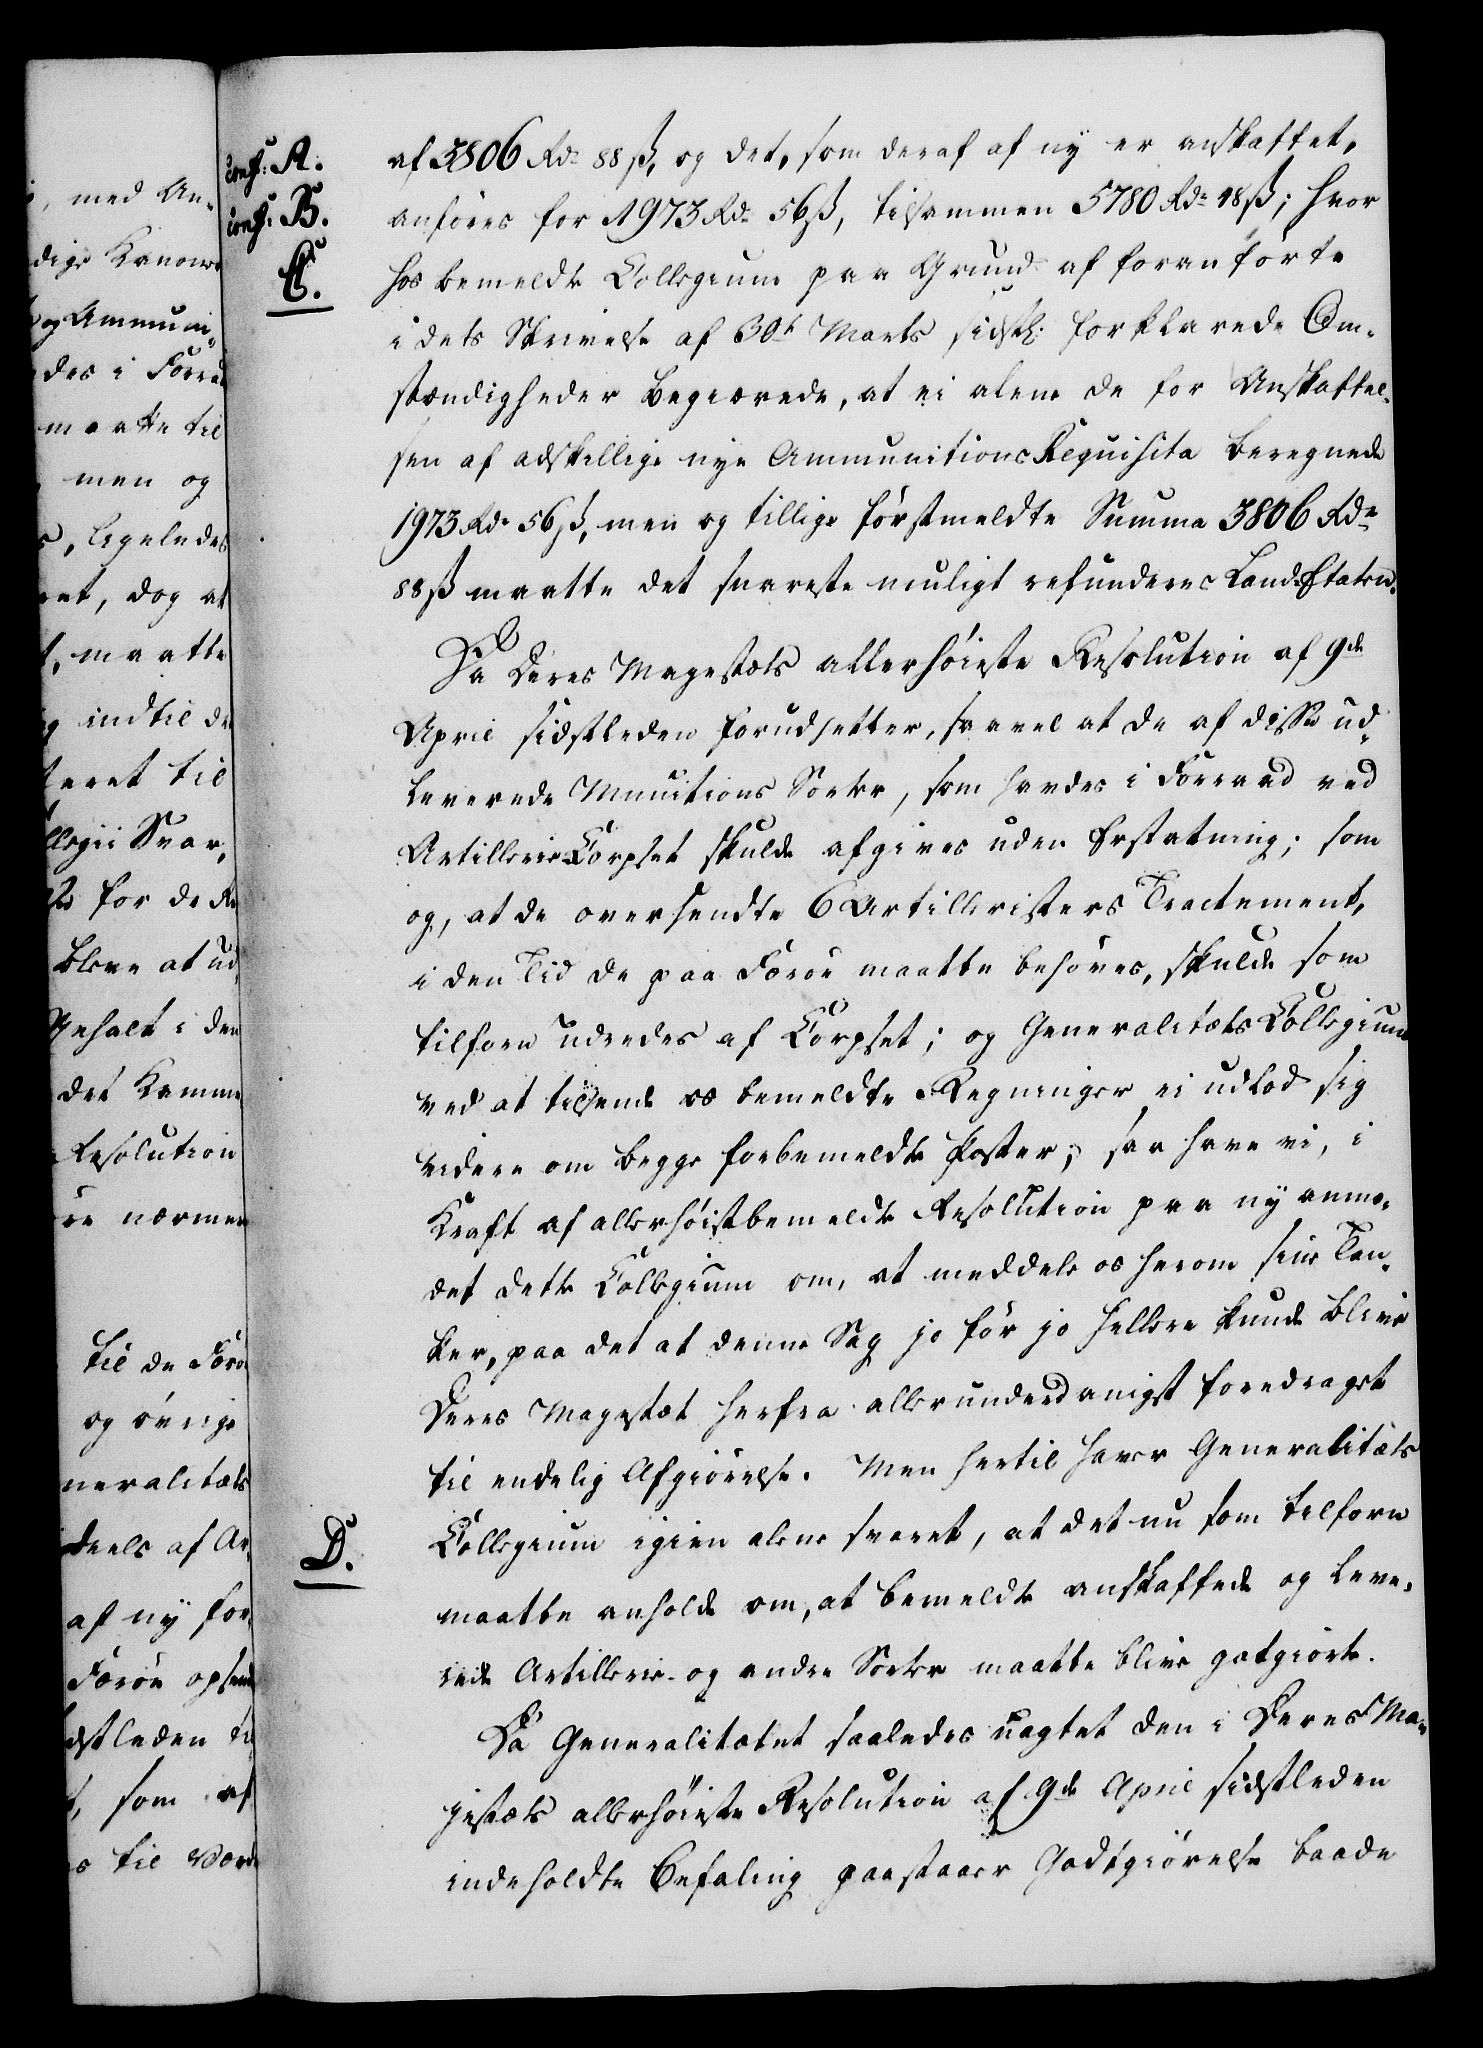 conf: A.
conf: B.
C.
af 3806 Rdr 88 ß, og det, som deraf af ny er anskaffet,
anføres for 1973 Rdr 56 ß, tilsammen 5780 Rdr 48 ß; hvor
hos bemeldte Collegium paa Grund af foranførte
i dets Skrivelse af 30te Marts sidstl: forklarede Om-
stændigheder begiærede, at ei alene de for Anskaffel-
sen af adskillige nye Ammunitions Requisita beregnede
1973 Rdr 56 ß, men og tillige førstmeldte Summa 3806 Rdr
88 ß maatte det snareste muligt refunderes Land-Etaten.
Da Deres Majestæts allerhøieste Resolution af 9de
April sidstleden forudsetter, saavel at de af disse ud-
leverede Munitions Sorter, som havdes i Forraad ved
Artillerie-Corpset skulde afgives uden Erstatning; som
og, at de oversendte 6 Artilleristers Tractement,
i den Tid de paa Færøe maatte behøves, skulde som
tilforn udredes af Corpset; og Generalitets Collegium
ved at tilsende os bemeldte Regninger ei udlod sig
videre om begge forbemeldte Poster; saa have vi, i
Kraft af allerhøistbemeldte Resolution paa ny anmo-
det dette Collegium om, at meddele os herom sine Tan-
ker, paa det at denne Sag jo før jo hellere kunde blive
Deres Majestæt herfra allerunderdanigst foredraget
til endelig Afgiørelse. Men hertil haver Generalitets
D.
Collegium igien alene svaret, at det nu som tilforn
maatte anholde om, at bemeldte anskaffede og leve-
rede Artillerie- og andre Sorter maatte blive godtgiorte.
Da Generalitetet saaledes uagtet den i Deres Ma-
jestæts allerhøieste Resolution af 9de April sidstleden
indeholdte Befaling paastaaer Godtgiørelse baade